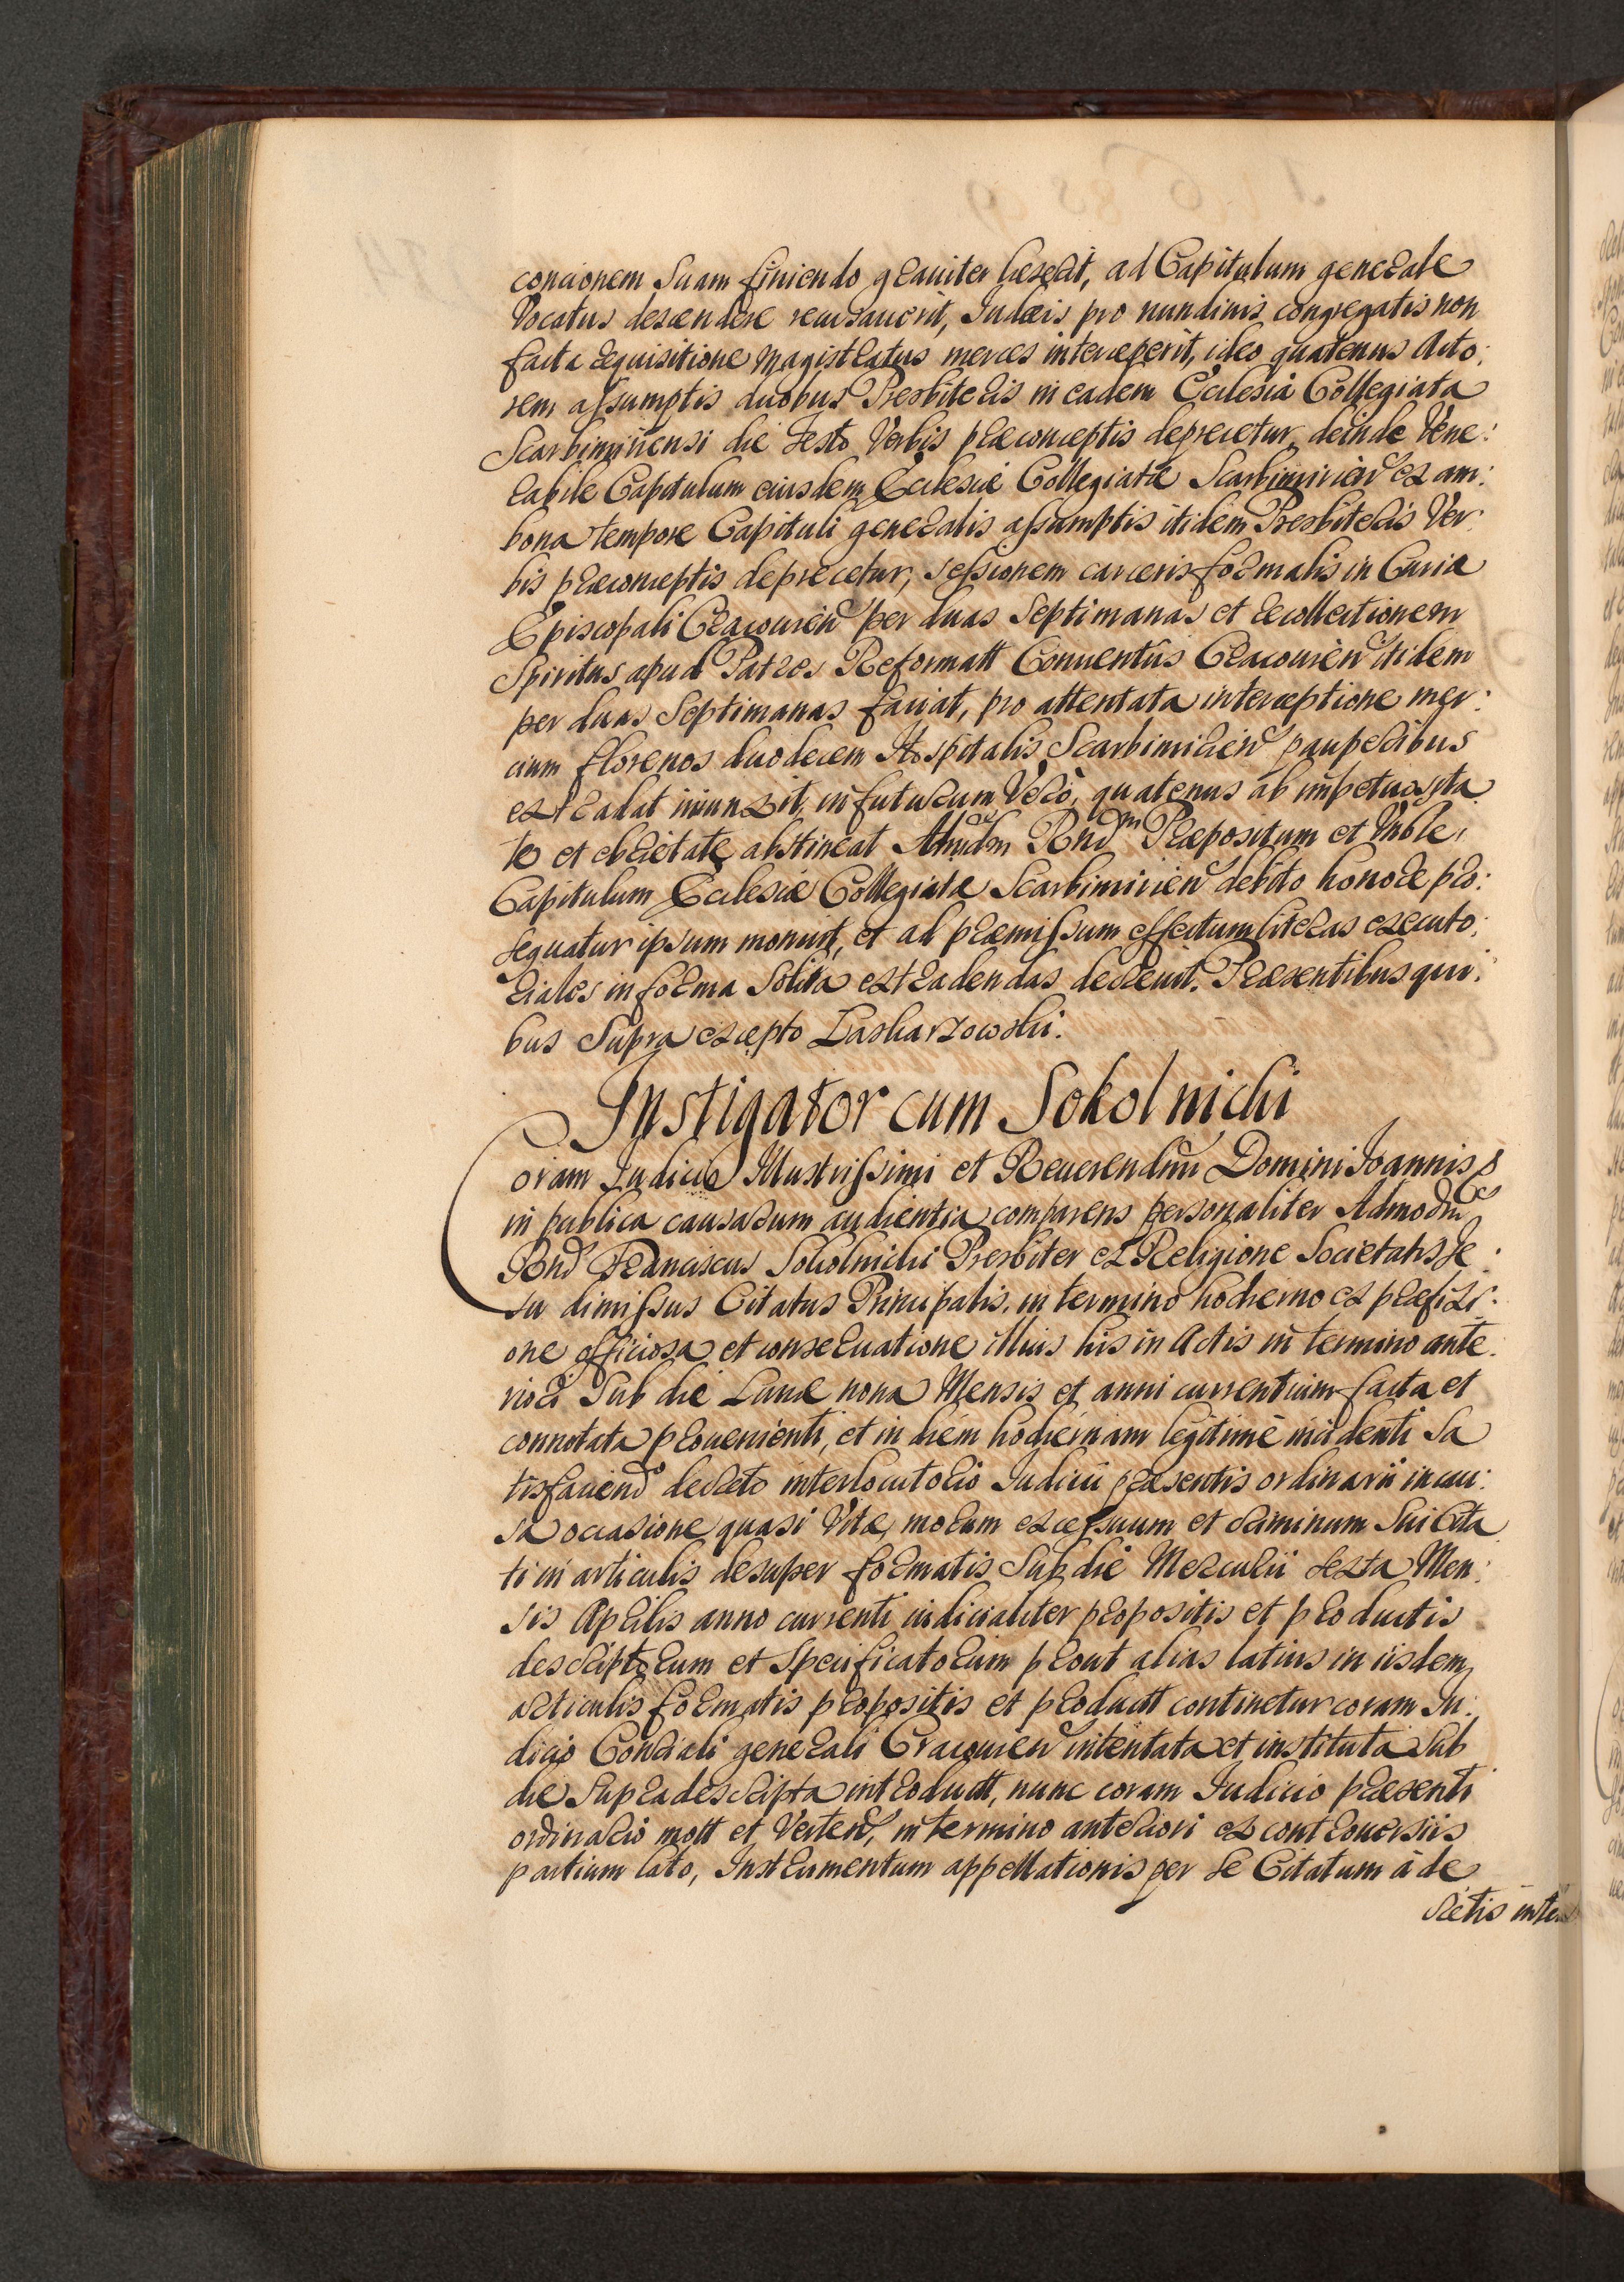 concionem Suam finiendo grauiter læserit, ad Capitulum generale
Vocatus descendere recusauerit, Judæis pro nundinis congregatis non
facta requisitione Magistratus merces interceperit, ideo quatenus Acto:
rem assumptis duobus Presbiteris in eadem Ecclesia Collegiata
Scarbimiriensi die Festo Verbis præconceptis deprecetur, deinde Vene:
rabile Capitulum eiusdem Ecclesiæ Collegiatæ Scarbimirien ex am:
bona tempore Capituli generalis assumptis itidem Presbiteris Ver:
bis præconceptis deprecetur, sessionem carceris formalis in Curia
Episcopali Cracouien per duas Septimanas et recollectionem
Spiritus apud Patres Reformatt Conuentûs Cracouien itidem
per duas Septimanas faciat, pro attentata interceptione mer:
cium florenos duodecem Hospitalis Scarbimirien pauperibus
extradat iniunxit, in futurum Verò, quatenus ab impetuosita
te et ebrietate abstineat Admdm Rndm Præpositum et Vnble
Capitulum Ecclesiæ Collegiatæ Scarbimirien debito honore pro:
sequatur ipsum monuit, et ad præmissum effectum literas executo:
riales in forma Solita extradendas decreuit. Præsentibus qui:
bus Supra excepto Laskarzowski.
Instigator cum Sokolnicki
Coram Judicio Illustrissimi et Reuerendmi Domini Joannis &
in publica causarum audientia comparens personaliter Admodm
Rnd Franciscus Sokolnicki Presbiter ex Religione Societatis Je:
su dimissus Citatus Principalis, in termino hodierno ex præfixi:
one officiosa et conseruatione illius his in Actis in termino ante:
riori Sub die Lunæ nona Mensis et anni currentium facta et
connotata proueniente, et in diem hodiernam legitimè incidenti Sa
tisfaciend decreto interlocutorio Judicii præsentis ordinarii in cau:
sa occasione quasi Vitæ, morum excessuum et criminum Sui Cita
ti in articulis desuper formatis Sub die Mercurii Sexta Men:
sis Aprilis anno currenti iudicialiter propositis et productis
descriptorum et Specificatorum prout alias latius in iisdem
articulis formatis propositis et productt continetur coram Ju:
dicio Consiali generali Cracouien intentata et instituta Sub
die Supradescripta introductt, nunc coram Judicio præsenti
ordinario mott et Verten, in termino anteriori ex controuersiis
partium lato, Instrumentum appellationis per Se Citatum à de
cretis inter